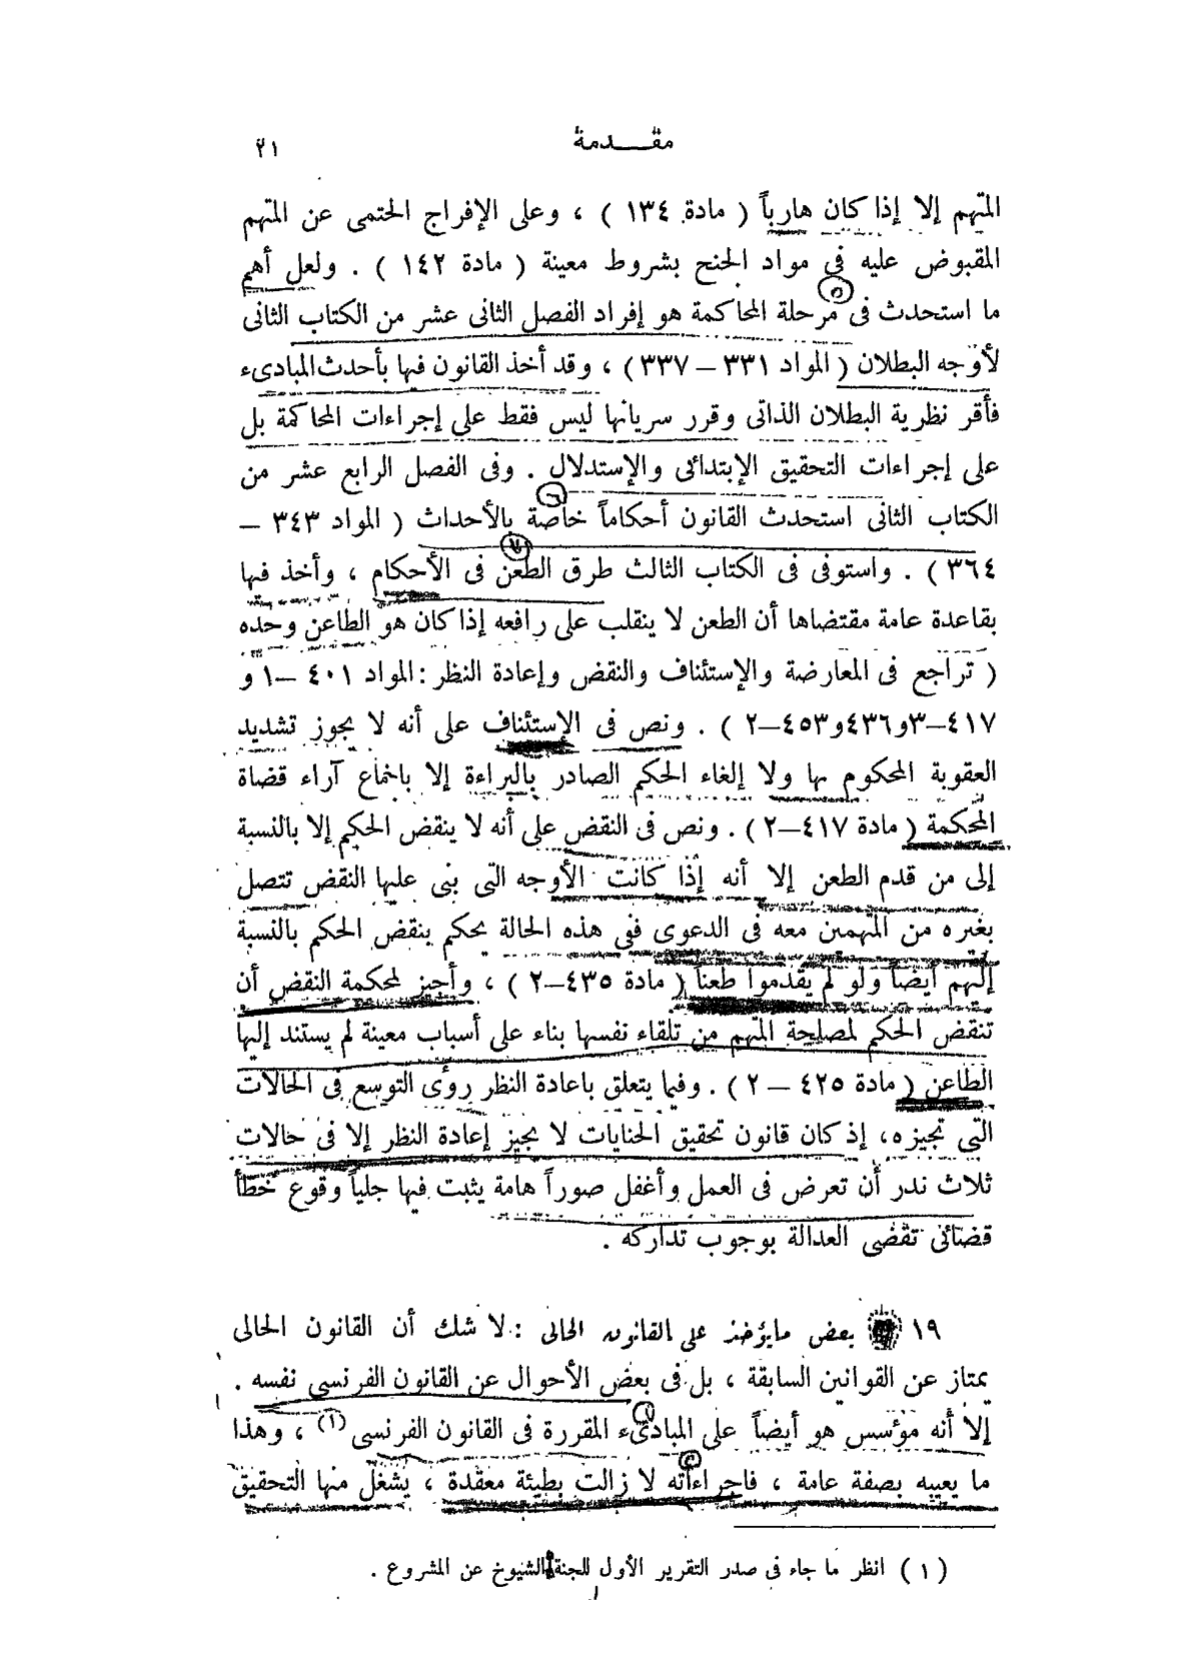 مقدمة
٢١
المتهم إلا إذا كان هارباً ( مادة ١٣٤ ) ، وعلى الإفراج الحتمى عن المتهم
المقبوض عليه فى مواد الجنح بشروط معينة ( مادة ١٤٢ ) . ولعل أهم
ما استحدث فى مرحلة المحاكمة هو إفراد الفصل الثانى عشر من الكتاب الثانى
لأوجه البطلان ( المواد ٣٣١ – ٣٣٧ ) ، وقد أخذ القانون فيها بأحدث المبادىء
فأقر نظرية البطلان الذاتى وقرر سريانها ليس فقط على إجراءات المحاكمة بل
على إجراءات التحقيق الإبتدائى والإستدلال . وفى الفصل الرابع عشر من
الكتاب الثانى استحدث القانون أحكاماً خاصة بالأحداث ( المواد ٣٤٣ –
٣٦٤ ) . واستوفى فى الكتاب الثالث طرق الطعن فى الأحكام ، وأخذ فيها
بقاعدة عامة مقتضاها أن الطعن لا ينقلب على رافعه إذا كان هو الطاعن وحده
( تراجع فى المعارضة والإستئناف والنقض وإعادة النظر : المواد ٤٠١ –١ و
٤١٧–٣و٤٣٦و٤٥٣–٢ ) . ونص فى الإستئناف على أنه لا يجوز تشديد
العقوبة المحكوم بها ولا إلغاء الحكم الصادر بالبراءة إلا باجماع آراء قضاة
المحكمة ( مادة ٤١٧–٢ ) . ونص فى النقض على أنه لا ينقض الحكم إلا بالنسبة
إلى من قدم الطعن إلا أنه إذا كانت الأوجه التى بنى عليها النقض تتصل
بغيره من المتهمين معه فى الدعوى ففى هذه الحالة يحكم بنقض الحكم بالنسبة
إليهم أيضاً ولو لم يقدموا طعناً ( مادة ٤٣٥–٢ ) ، وأجيز لمحكمة النقض أن
تنقض الحكم لمصلحة المتهم من تلقاء نفسها بناء على أسباب معينة لم يستند إليها
الطاعن ( مادة ٤٢٥ – ٢ ) . وفيما يتعلق باعادة النظر روًى التوسع فى الحالات
التى تجيزه، إذ كان قانون تحقيق الجنايات لا يجيز إعادة النظر إلا فى حالات
ثلاث ندر أن تعرض فى العمل وأغفل صوراً هامة يثبت فيها جلياً وقوع خطأ
قضائى تقضى العدالة بوجوب تداركه .
١٩ بعض مايؤخذ على القانون الحالى : لا شك أن القانون الحالى
يمتاز عن القوانين السابقة ، بل فى بعض الأحوال عن القانون الفرنسى نفسه .
إلا أنه مؤسس هو أيضاً على المبادىء المقررة فى القانون الفرنسى (١) ، وهذا
ما يعيبه بصفة عامة ، فاجراءاته لا زالت بطيئة معقدة ، يشغل منها التحقيق
(١) انظر ما جاء فى صدر التقرير الأول للجنة الشيوخ عن المشروع .